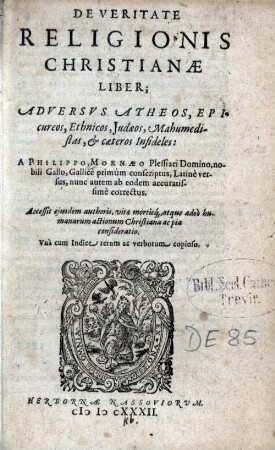 DE VERITATE
RELIGIONIS
CHRISTIANÆ
LIBER;
ADVERSVS ATHEOS, EPI-
cureos, Ethnicos, Judæos, Mahumedi-
stas, & cæteros Infideles:
A PHILIPPO MORNÆO Plessiaci Domino, no-
bili Gallo, Gallicè primùm conscriptus, Latinè ver-
sus, nunc autem ab eodem accuratis-
simè correctus.
Accessit ejusdem authoris, vitæ mortisq́, atque adeò hu-
manarum actionum Christiana ac pia
consideratio.
Vnà cum Indice rerum ac verborum copioso.
Bibl. Sem. Cath.
Trevir.
DE 85
HERBORNÆ NASSOVIORVM.
CIↃ IↃ CXXXII.